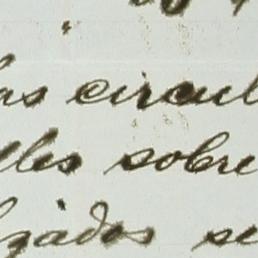 as circul
lles sobre
zados se